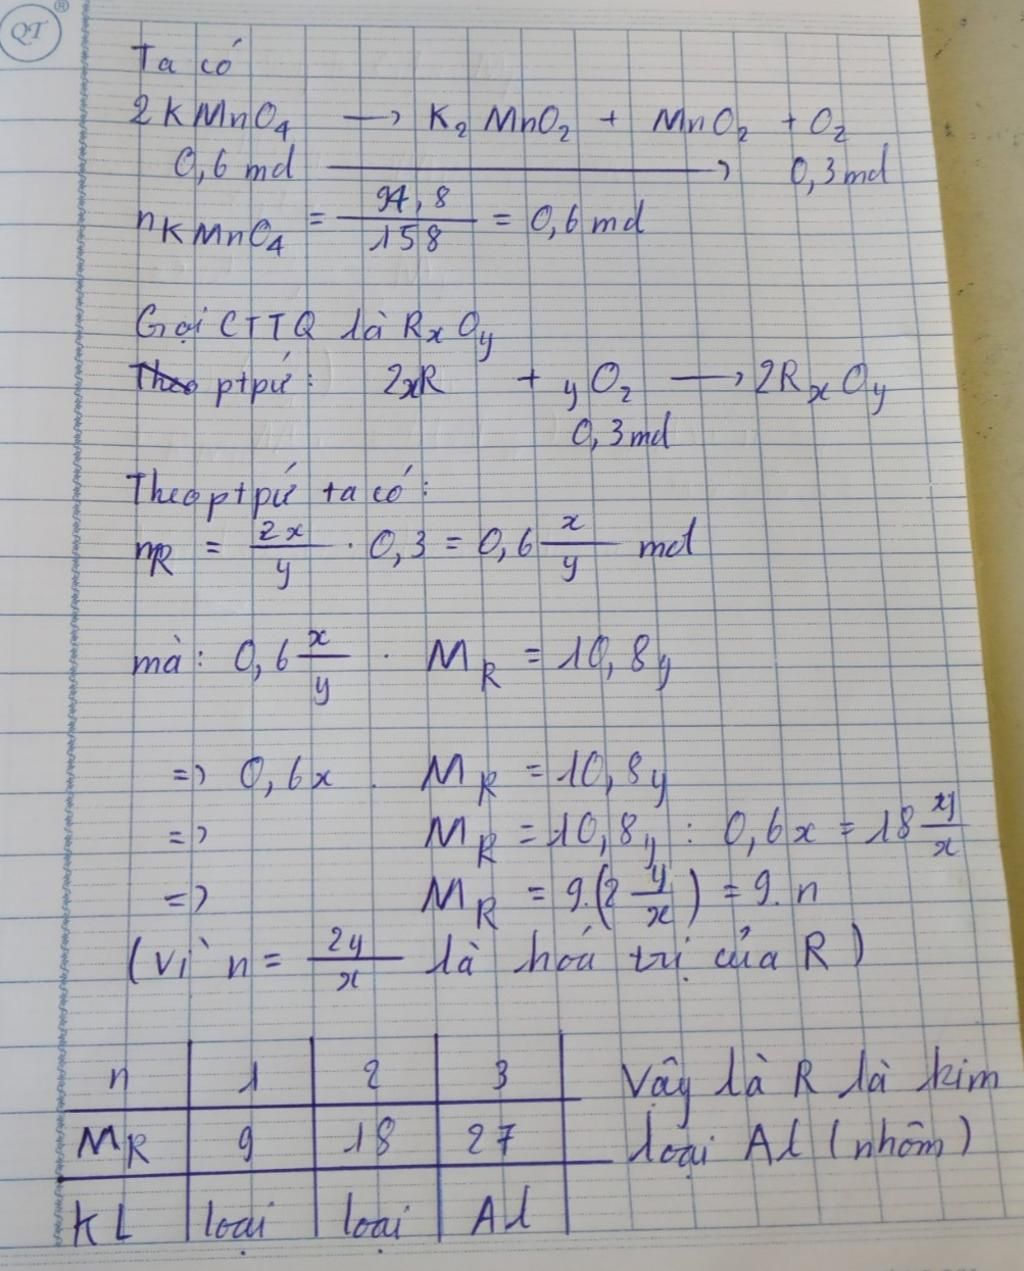 QT
Ta có
2KMnO₄ → K₂MnO₂ + MnO₂ + O₂
0,6 mol → 0,3 mol
nKMnO₄ = 94,8/158 = 0,6 mol
Gọi CTTQ là RₓOᵧ
ptpứ: 2xR + yO₂ → 2RₓOᵧ
0,3 mol
Theo ptpứ ta có:
nR = 2x/y . 0,3 = 0,6 x/y mol
mà: 0,6 x/y . M_R = 10,8y
=> 0,6x . M_R = 10,8y
=> M_R = 10,8y : 0,6x = 18 y/x
=> M_R = 9.(2 y/x) = 9.n
(Vì n = 2y/x là hoá trị của R)
n 1 2 3 Vậy là R là kim
M_R 9 18 27 loại Al (nhôm)
KL loại loại Al